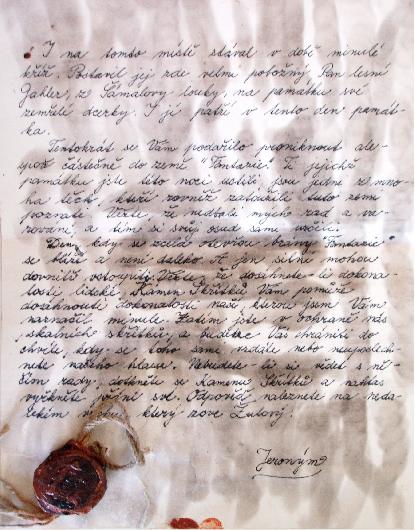 I na tomto místě stával v době minulé
kříž. Postavil jej zde velmi pobožný Pan lesní
Gahler, ze Šámalovy louky, na památku své
zemřelé dcerky. I jí patří v tento den památ-
ka.
Tentokrát se Vám podařilo proniknout ale-
spoň částečně do země "Fantazie". Ti jejichž
památku jste této noci uctili jsou jedni z mno-
ha těch, kteří rovněž zatoužili tuto zemi
poznat. Věřte, že nedbali mých rad a va-
rování a tím si svůj osud sami určili.
Den, kdy se zcela otevřou brány Fantazie
se blíží a není daleko. A jen silní mohou
dovnitř vstoupit. Věřte, že dosáhnete-li dokona-
losti lidské, Kámen Skřítků Vám pomůže
dosáhnouti dokonalosti naší, kterou jsem Vám
naznačil minule. Zatím jste v ochraně nás
skalních skřítků, a budeme Vás chrániti do
chvíle, kdy se toho sami vzdáte nebo neuposlech-
nete našeho hlasu. Nebudete-li si vědět s ně-
čím rady, dotkněte se Kamenu Skřítků a nahlas
vyřkněte přání své. Odpověď naleznete na neda-
lekém vrchu, který zove Žulový.
Jeroným